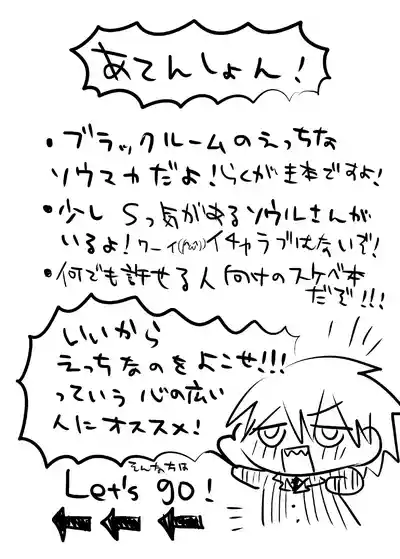 あてんしょん!
・ブラックルームのえっちな
ソウマカだよ!らくがき本ですよ!
・少しSっ気があるソウルさんが
いるよ!ワーイ イチャラブはないぞ!
・何でも許せる人向けのスケベ本
だぞ!!!
いいから
えっちなのをよこせ!!!
っていう心の広い
人にオススメ!
Let's go!